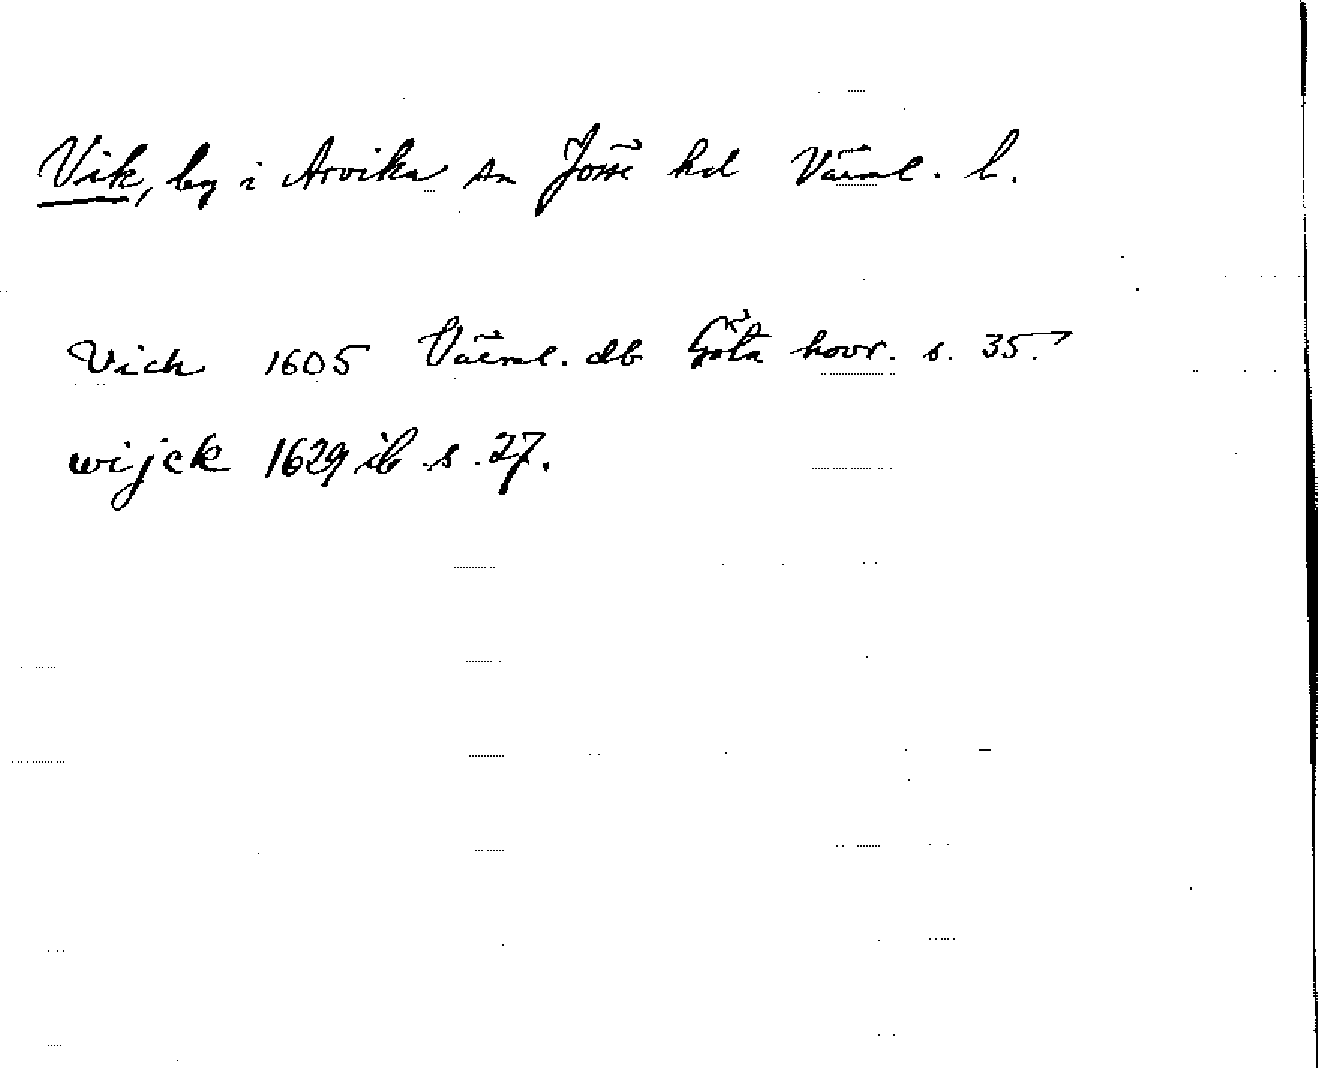 Vik, by i Arvika sn Jösse hd Värml. l.
Vich 1605 Värml. db Göta hovr. s. 35.
wijck 1629 ib s. 27.